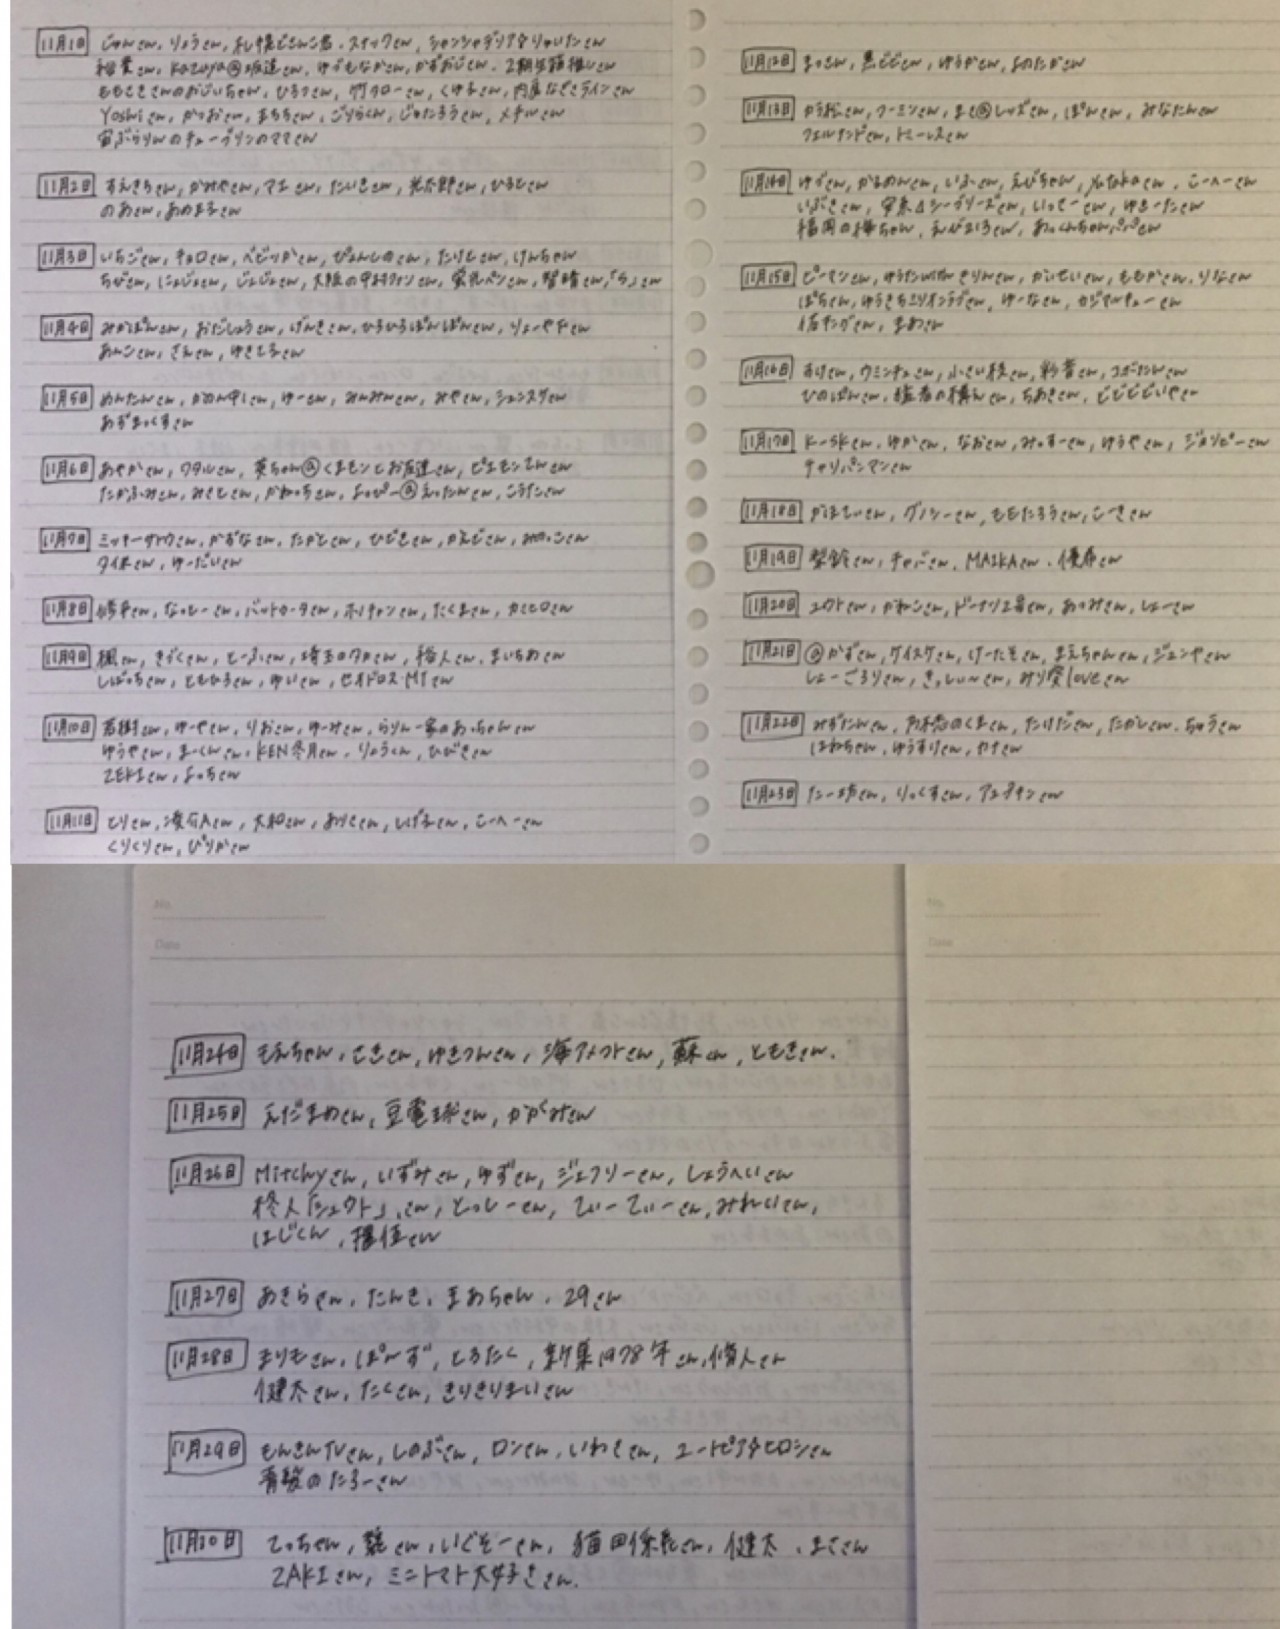 11月1日 じゅんさん, りょうさん, 札幌どさんこ君, スナックさん, シャンシャデリア☆りゅいたさん
裕貴さん, Kazuya@坂道さん, ゆづもなかさん, かずおじさん, 2期生箱推しさん
ももこさきさんのおじいちゃん, ひろつさん, 竹クローさん, くゆ子さん, 内房なぎさラインさん
Yoshiさん, かつおさん, まちちさん, ごりらくん, じゅたろうさん, メチルさん
宙ぶらりんのチューブリンのママさん
11月2日 すえきちさん, かみやさん, マエさん, たいきさん, 光太郎さん, ひろとさん
のあさん, あめまるさん
11月3日 いちごさん, チョロさん, ベビわかさん, ぴょんしのさん, たけとさん, けんちゃん
ちびさん, にょじょさん, じょじょさん, 大阪の
11月4日 みかぽんさん, おだしょうさん, げんきさん, ひろひろぽんぽんさん, りょーやFさん
あんこさん, さえさん, ゆきまるさん
11月5日 めんたんさん, かめん申しさん, ゆーさん, みんみんさん, みやさん, シュンスケさん
あずまっくすさん
11月6日 あやかさん, ワタルさん, 葵ちゃん@くまモンとお友達さん, ピエモンてんさん
たかふみさん, みさとさん, がわっちさん, よっぴー@えったんさん, こうたさん
11月7日 ミッキーサトウさん, かずなさん, たかとさん, ひびきさん, かえでさん, みわっこさん
タイ米さん, ゆーだいさん
11月8日 勝平さん, なっしーさん, バットカータさん, ホリチャンさん, たくまさん, カミヒロさん
11月9日 楓さん, きづくさん, とーふさん, 埼玉のタカさん, 裕人さん, まいちめさん
しばっちさん, ともひろさん, ゆいさん, セイドロス・MTさん
11月10日 若樹さん, ゆーやさん, りおさん, ゆーみさん, らりルー家のあっちゃんさん
ゆうやさん, まーくんさん, KEN冬月さん, りょうくん, ひびきさん
ZEKIさん, よっちさん
11月11日 とりさん, 凌介Aさん, 大和さん, ありささん, しげ子さん, こーへーさん
くりくりさん, ぴりかさん
11月12日 まっさん, 黒ビビさん, ゆうかさん, よのたかさん
11月13日 から松さん, フーミンさん, まさ@レッズさん, ぽんさん, みなたんさん
フェルナンドさん, トミーレスさん
11月14日 ゆづさん, かるめんさん, いふーさん, えびちゃん, こーへーさん
いぶきさん, いっせーさん, ゆきーたさん
福岡の梅ちゃん, えびまヨろさん, あっくんちゃんさん
11月15日 ピーマンさん, ゆうたwithきりんさん, かいせいさん, ももかさん, りなさん
ぱちさん, ゆうきちミリオンラブさん, ゆーなさん, カジマルチューさん
信キングさん, まおさん
11月16日 すけさん, ウミンチュさん, 小さい猿さん, 彩香さん, コボたんさん
ひのぽんさん, 強者の構えさん, ちあきさん, ビビビビいやさん
11月17日 K-SKさん, ゆかさん, なおさん, みっすーさん, ゆうやさん, ジョリピーさん
チャリパンマンさん
11月18日 かほてぃさん, グノシーさん, ももたろうさん, こーきさん
11月19日 梨鈴さん, チャバさん, MAIKAさん, 優希さん
11月20日 ユウトさん, かねこさん, ドーナツ2号さん, あつみさん, しょーさん
11月21日 @かずさん, ケイスケさん, けーたそさん, まえちゃんさん, ジュンヤさん
しょーごろりさん, きっしぃ〜さん, みり愛loveさん
11月22日 みずたんさん, 内弁慶のくまさん, たけださん, たかしさん, ちゅうさん
はねちゃん, ゆうすりさん, カナさん
11月23日 たー坊さん, りっくすさん, アユタナンさん
11月24日 もえちゃん, さきさん, ゆきつんさん, 海アメフトさん, 蘇さん, ともきさん.
11月25日 えだまめさん, 豆電球さん, かがみさん
11月26日 Mitchyさん, いずみさん, ゆずさん, ジェフリーさん, しょうへいさん
柊人「シュウト」さん, とっしーさん, てぃーてぃーさん, みれいさん,
はじくん, 揚佳さん
11月27日 あきらさん, たんき, まおちゃん, 29さん
11月28日 まりもさん, ぱ〜ず, とろたく, 新集1978年さん, 脩人さん
健太さん, たくさん, きりきりまいさん
11月29日 もんきんTVさん, しのぶさん, ロンさん, いわささん, ユートピア☆ヒロシさん
青髪のたろーさん
11月30日 てっちゃん, 龍さん, いぐぞーさん, 猫田係長さん, 健太, まささん
ZAKIさん, ミニトマト大好きさん.